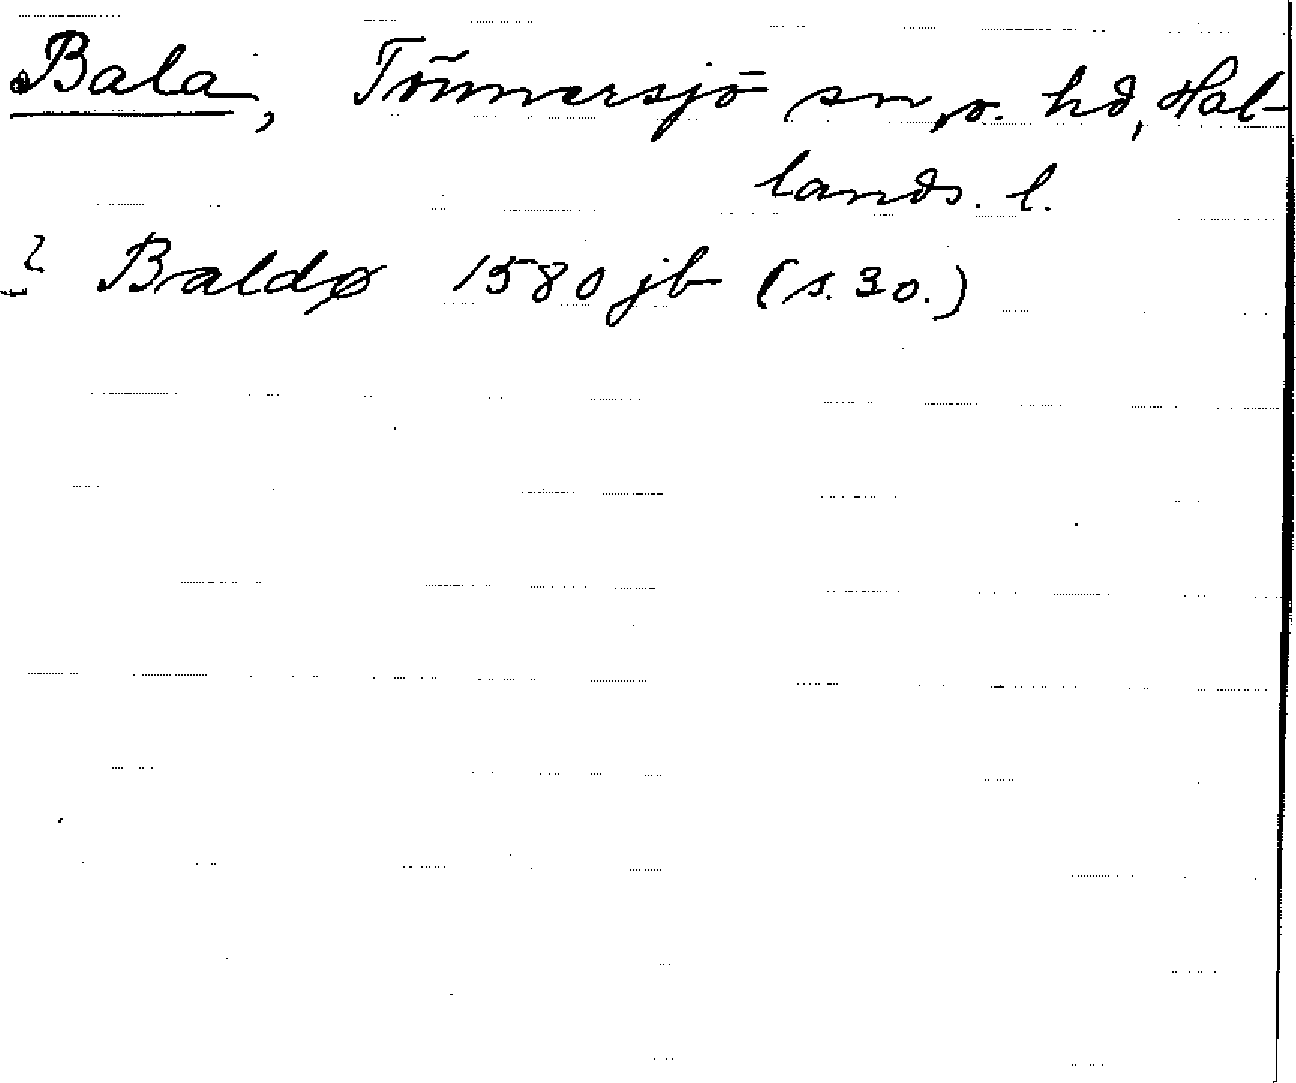 Bala, Tönnersjö sn, o. hd, Hal-
lands. l.
? Baldø 1580 jb (s. 30.)